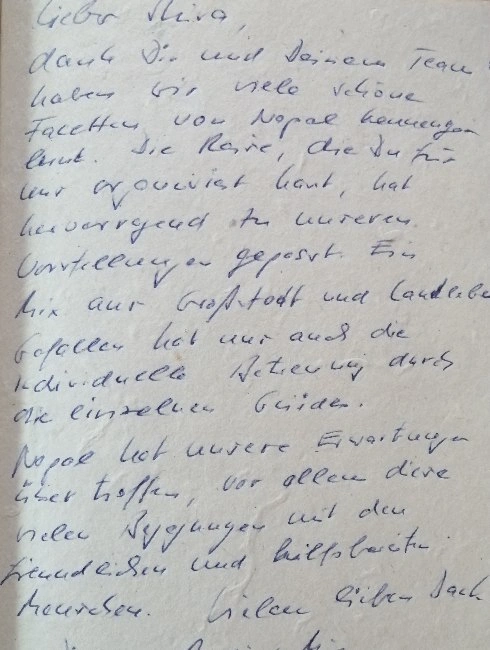 Lieber Shiva,
dank Dir und Deinem Team
haben wir viele schöne
Facetten von Nepal kennenge
lernt. Die Reise, die Du für
uns organisiert hast, hat
hervorragend zu unseren
Vorstellungen gepasst. Ein
Mix aus Großstadt und Landlebe
Gefallen hat uns auch die
individuelle Betreuung durch
die einzelnen Guides.
Nepal hat unsere Erwartungen
übertroffen, vor allem diese
vielen Begegnungen mit den
freundlichen und hilfsbereiten
Menschen. Vielen lieben Dank